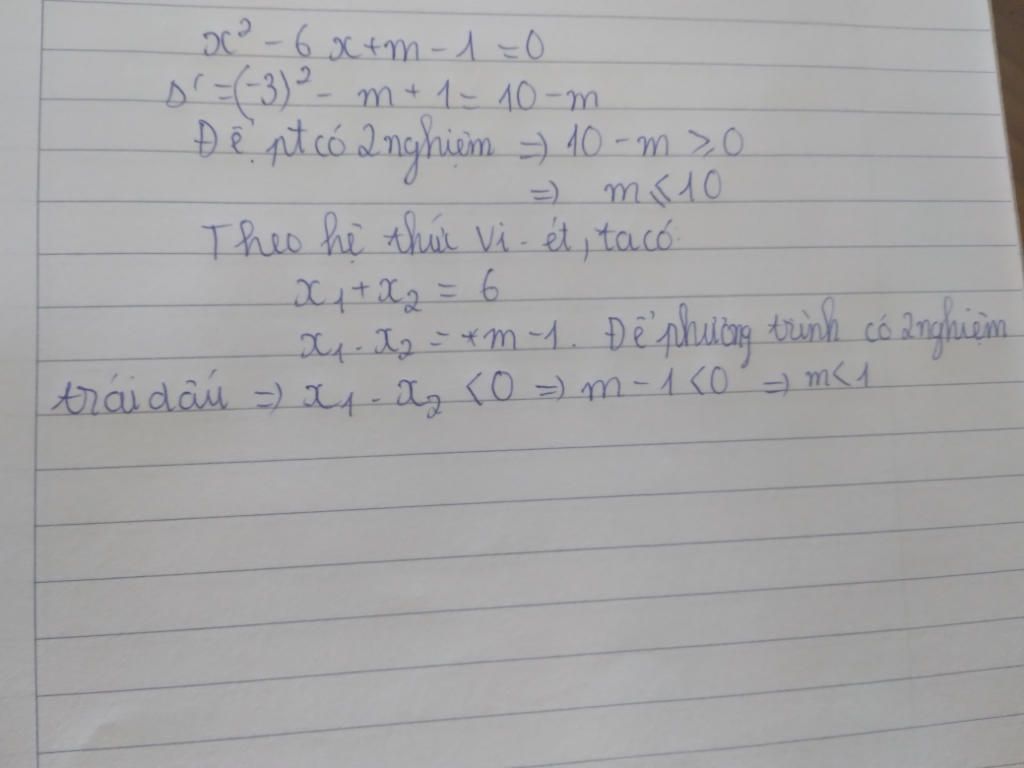 x² - 6x + m - 1 = 0
Δ' = (-3)² - m + 1 = 10 - m
Để pt có 2 nghiệm => 10 - m ≥ 0
=> m ≤ 10
Theo hệ thức Vi-ét, ta có
x₁ + x₂ = 6
x₁ . x₂ = +m - 1. Để phương trình có 2 nghiệm
trái dấu => x₁ . x₂ < 0 => m - 1 < 0 => m < 1